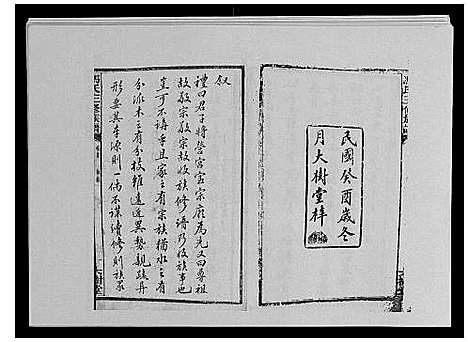 民國癸酉歲冬
月大樹堂梓
叙
禮曰君子將營宮室宗廟為先又曰尊祖
故敬宗敬宗故收族修譜乃收族事也
豈可不講乎且家之有宗族猶水之有
分派木之有分枝雖遠近異勢親疏丹
形要其本源則一倘不謀續修則族眾